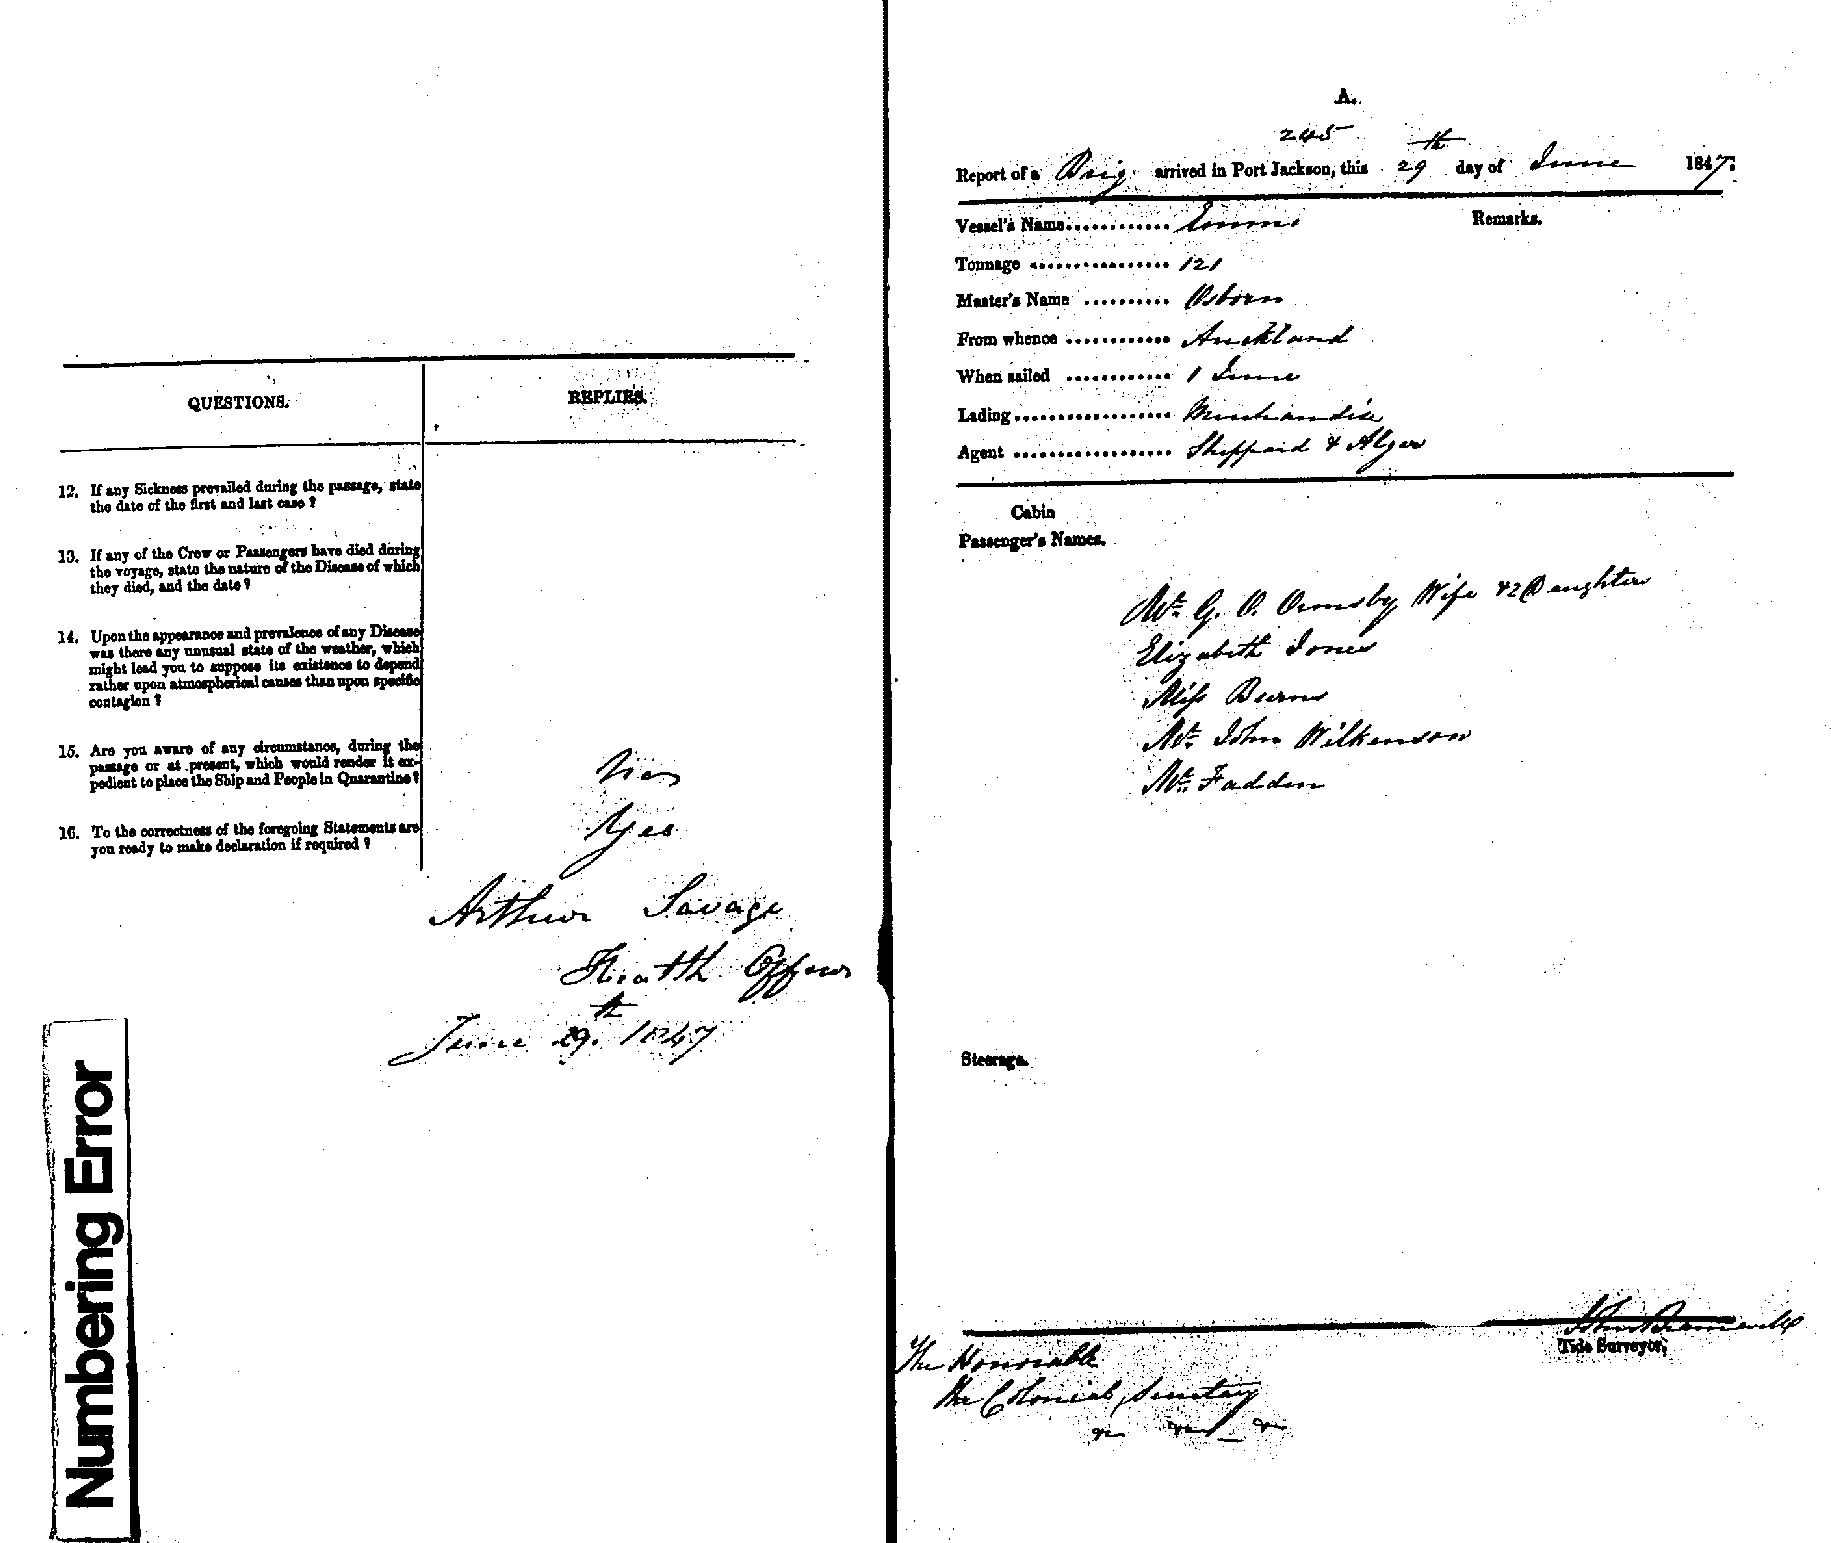 QUESTIONS.
REPLIES.
12. If any Sickness prevailed during the passage, state
the date of the first and last case ?
13. If any of the Crew or Passengers have died during
the voyage, state the nature of the Disease of which
they died, and the date ?
14. Upon the appearance and prevalence of any Disease
was there any unusual state of the weather, which
might lead you to suppose its existence to depend
rather upon atmospherical causes than upon specific
contagion ?
15. Are you aware of any circumstance, during the
passage or at present, which would render it ex-
pedient to place the Ship and People in Quarantine ?
16. To the correctness of the foregoing Statements are
you ready to make declaration if required ?
Yes
Arthur Savage
Health Officer
June 29th. 1847
Numbering Error
A.
245
Report of a Brig arrived in Port Jackson, this 29th day of June 1847.
Vessel's Name............ Emma
Remarks.
Tonnage ................ 121
Master's Name .......... Osborn
From whence ............ Auckland
When sailed ............ 1 June
Lading.................. Merchandise
Agent .................. Sheppard & Alger
Cabin
Passenger's Names.
Mr. G. O. Ormsby Wife & 2 Daughters
Elizabeth Jones
Miss Burns
Mr. John Wilkinson
Mr. Fadden
Steerage.
Tide Surveyor,
The Honorable
The Colonial Secretary